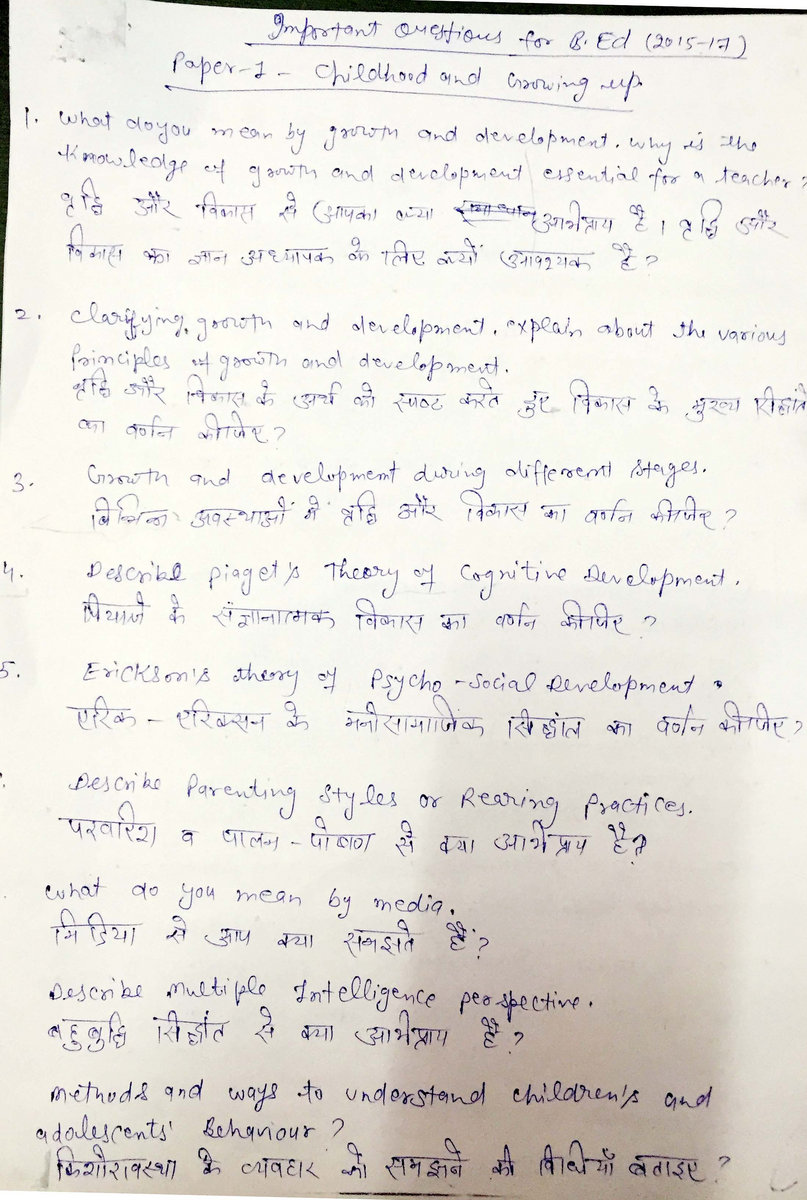 Important Questions for B.Ed (2015-17)
Paper-1 - Childhood and Growing up
1. What do you mean by growth and development. Why is the
knowledge of growth and development essential for a teacher?
वृद्धि और विकास से आपका क्या अभिप्राय है। वृद्धि और
विकास का ज्ञान अध्यापक के लिए क्यों आवश्यक है?
2. Clarifying, growth and development. explain about the various
Principles of growth and development.
वृद्धि और विकास के अर्थ को स्पष्ट करते हुए विकास के मुख्य सिद्धांतों
का वर्णन कीजिए?
3. Growth and development during different stages.
विभिन्न अवस्थाओं में वृद्धि और विकास का वर्णन कीजिए?
4. Describe Piaget's Theory of Cognitive Development.
पियाजे के संज्ञानात्मक विकास का वर्णन कीजिए?
5. Erickson's theory of Psycho-Social Development.
एरिक - एरिक्सन के मनोसामाजिक सिद्धांत का वर्णन कीजिए?
Describe Parenting Styles or Rearing Practices.
परवरिश व पालन-पोषण से क्या अभिप्राय है?
What do you mean by media.
मिडिया से आप क्या समझते हैं?
Describe multiple Intelligence perspective.
बहुबुद्धि सिद्धांत से क्या अभिप्राय है?
methods and ways to understand children's and
adolescents' Behaviour?
किशोरावस्था के व्यवहार को समझने की विधियाँ बताइए?